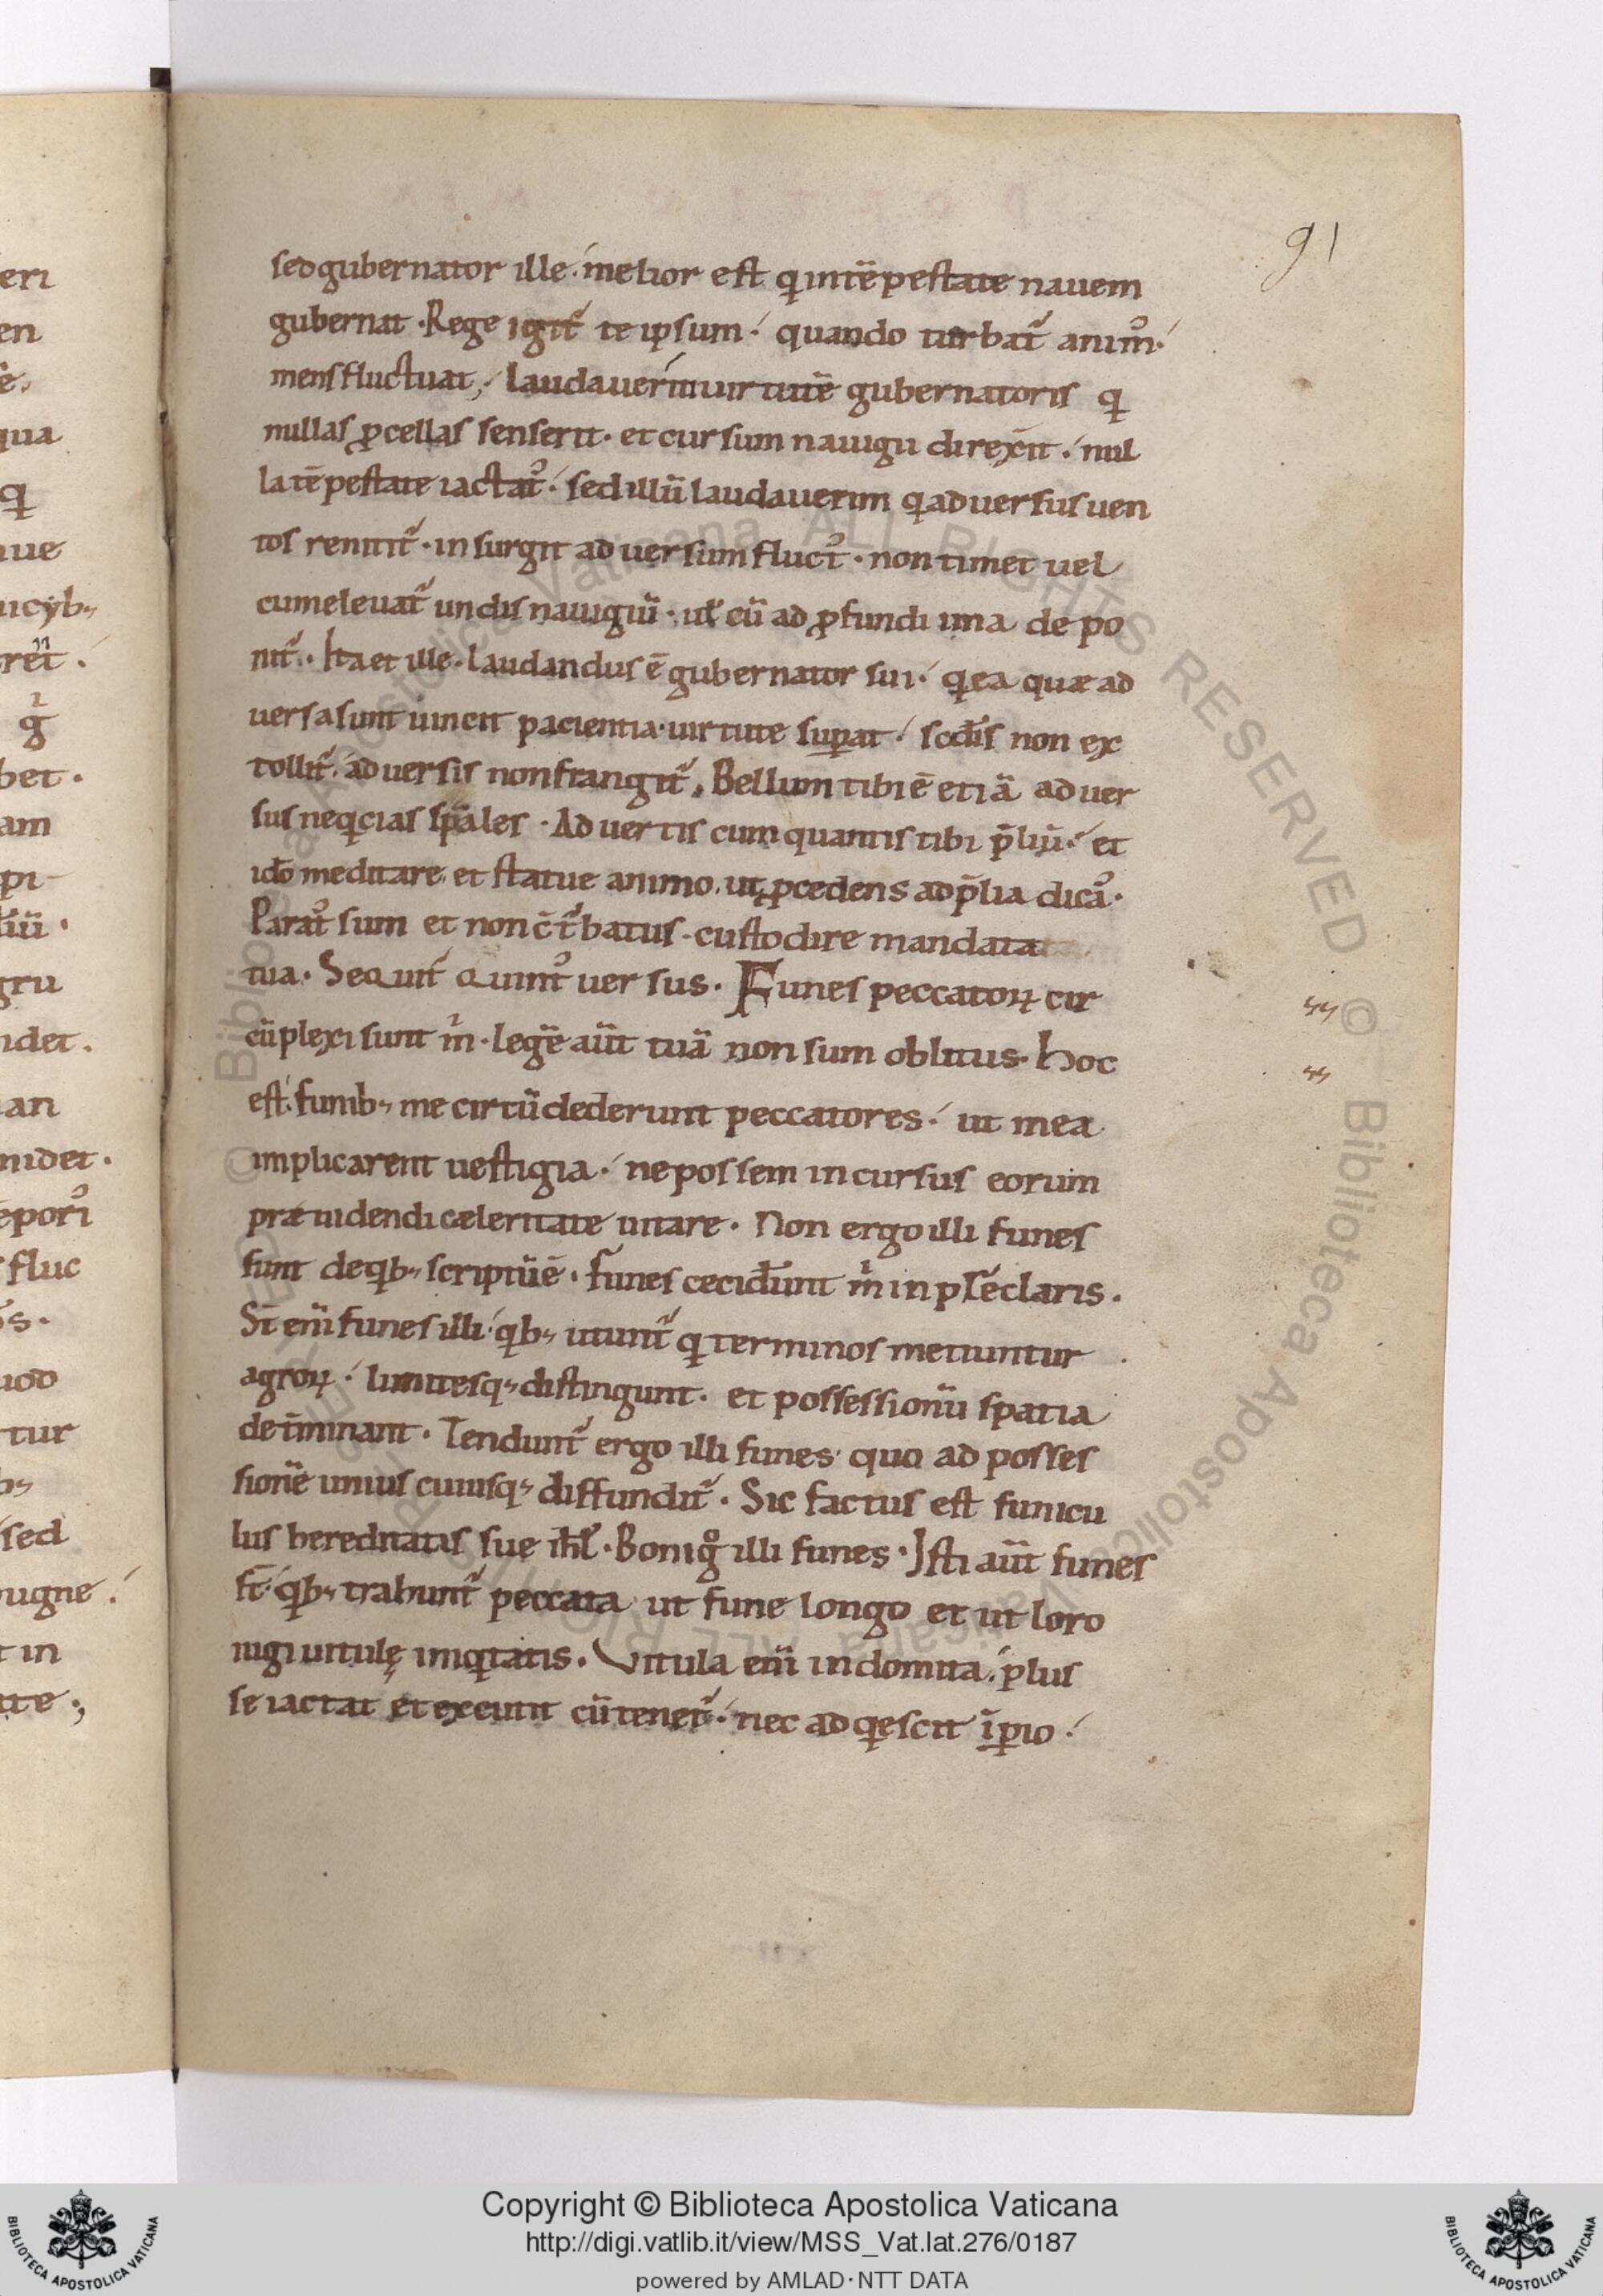 91
sed gubernator ille melior est q intẽpestate nauem
gubernat · Rege igit᷑ te ipsum · quando turbat᷑ anim᷒ ·
mens fluctuat; Laudauerim uirtutẽ gubernatoris q
nullas ꝓcellas senserit · et cursum nauigii direxit · nul
la tẽpestate iactat᷒ · sed illũ laudauerim q aduersus uen
tos renitit᷑ · insurgit aduersum fluct᷒ · non timet uel
cum eleuat᷑ undis nauigiũ · ul̃ cũ ad ꝓfundi ima depo
nit᷑ · Ita et ille laudandus ẽ gubernator sui · q ea quæ ad
uersa sunt uincit pacientia · uirtute suꝑat · scd̃is non ex
tollit᷑ · aduersis non frangit᷑ · Bellum tibi ẽ etiã aduer
sus neqcias sp̃ales · Aduertis cum quantis tibi p̃liũ · et
ido meditare et statue animo · ut ꝓcedens ad p̃lia dicã ·
Parat᷒ sum et non c̃t᷑batus · custodire mandata
tua · Sequit᷑ Quint᷒ uersus · Funes peccatoꝝ cir
cũplexi sunt m̃ · legẽ aũt tuã non sum oblitus · Hoc
est funib; me circũdederunt peccatores · ut mea
implicarent uestigia · ne possem incursus eorum
præuidendi cæleritate uitare · Non ergo illi funes
sunt de qb; scriptũ ẽ · funes cecider̃unt m̃ in p̃claris ·
St̃ eñi funes illi qb; utunt᷑ q terminos metiuntur
agroꝝ · limitesq; distingunt · et possessionũ spatia
det̃minant · Tendunt᷑ ergo illi funes quo ad posses
sionẽ unius cuiusq; diffundit᷑ · Sic factus est funicu
lus hereditatis sue ih̃l · Boni g° illi funes · Isti aũt funes
st̃ qb; trahunt᷑ peccata ut fune longo et ut loro
iugi uitulę iniqtatis · Vitula eñi indomita · plus
se iactat et excutit cũ tenet᷑ · nec adqescit ĩꝑio ·
Copyright © Biblioteca Apostolica Vaticana
http://digi.vatlib.it/view/MSS_Vat.lat.276/0187
powered by AMLAD·NTT DATA